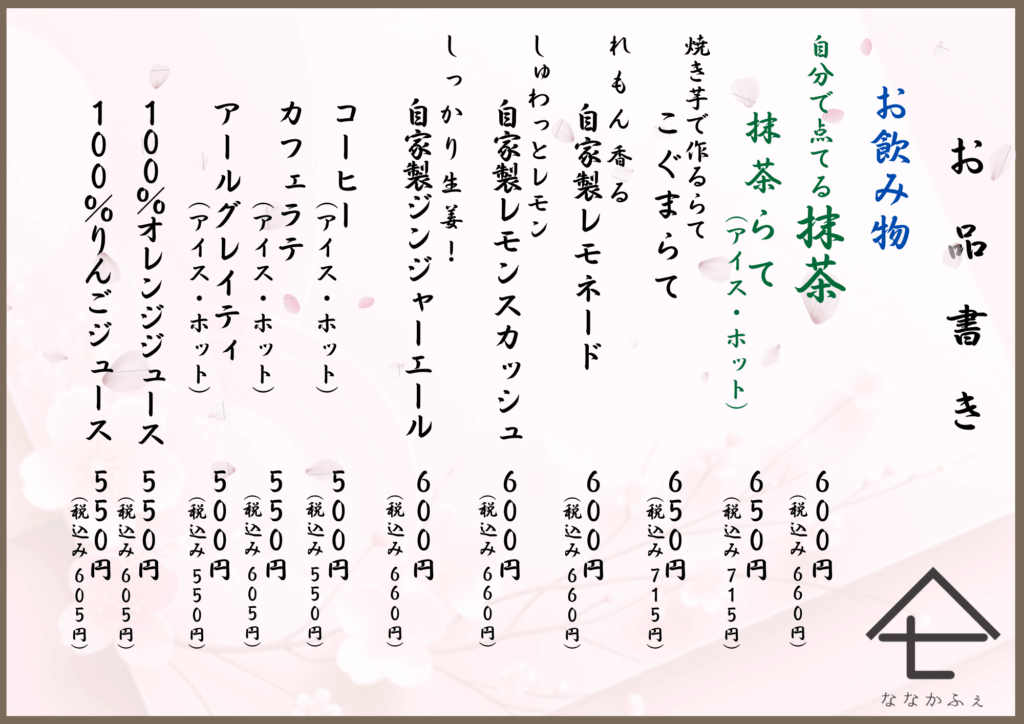 お品書き
お飲み物
自分で点てる抹茶
600円
(税込み 660円)
抹茶らて
(アイス・ホット)
650円
(税込み 715円)
焼き芋で作るらて
こぐまらて
650円
(税込み 715円)
れもん香る
自家製レモネード
600円
(税込み 660円)
しゅわっとレモン
自家製レモンスカッシュ
600円
(税込み 660円)
しっかり生姜！
自家製ジンジャーエール
600円
(税込み 660円)
コーヒー
(アイス・ホット)
500円
(税込み 550円)
カフェラテ
(アイス・ホット)
550円
(税込み 605円)
アールグレイティ
(アイス・ホット)
500円
(税込み 550円)
100%オレンジジュース
550円
(税込み 605円)
100%りんごジュース
550円
(税込み 605円)
ななかふぇ